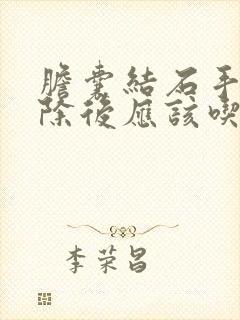 膽囊結石手
除後應該喫
李荣昌